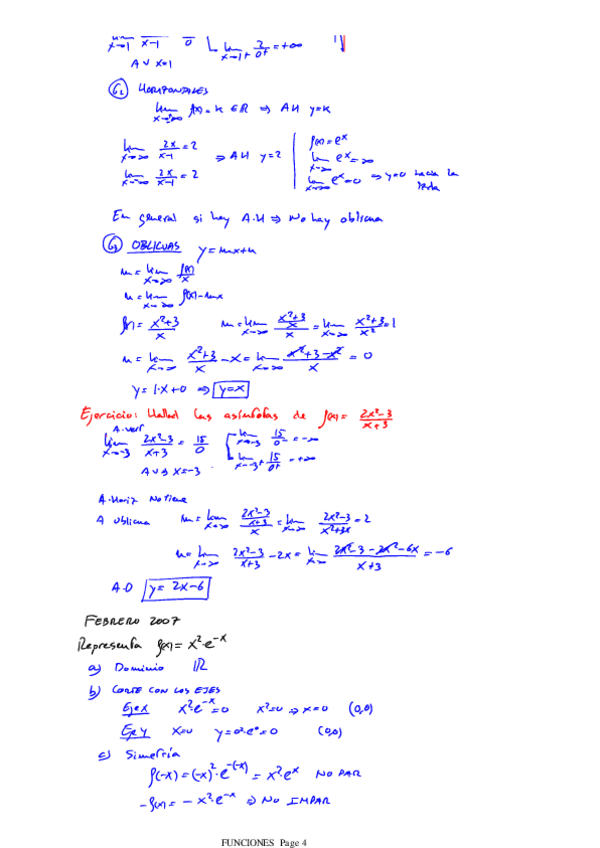 lim x→1 x-1 0 lim x→1+ 2/0+ = +∞
A V x=1
G2 HORIZONTALES
lim x→∞ f(x) = K ∈ R ⇒ A H y=K
lim x→∞ 2x/x-1 = 2 ⇒ A H y=2
lim x→-∞ 2x/x-1 = 2
f(x) = e^x
lim x→∞ e^x = ∞
lim x→-∞ e^x = 0 ⇒ y=0 hacia la
En general si hay A.H ⇒ No hay oblicua
G3 OBLICUAS y = mx+n
m = lim x→∞ f(x)/x
n = lim x→∞ f(x)-mx
f(x) = x²+3/x m = lim x→∞ (x²+3/x)/x = lim x→∞ x²+3/x² = 1
n = lim x→∞ x²+3/x - x = lim x→∞ x²+3-x²/x = 0
y = 1·x+0 ⇒ y=x
Ejercicio: Hallad las asíntotas de f(x) = 2x²-3/x+3
A. Vert
lim x→-3 2x²-3/x+3 = 15/0 lim x→-3- 15/0- = -∞
lim x→-3+ 15/0+ = +∞
A V x=-3
A. Horiz No tiene
A oblicua m = lim x→∞ (2x²-3/x+3)/x = lim x→∞ 2x²-3/x²+3x = 2
n = lim x→∞ 2x²-3/x+3 - 2x = lim x→∞ 2x²-3-2x²-6x/x+3 = -6
A.O y = 2x-6
FEBRERO 2007
Representa f(x) = x²·e^-x
a) Dominio R
b) CORTE CON LOS EJES
Eje X x²·e^-x = 0 x²=0 ⇒ x=0 (0,0)
Eje Y x=0 y=0²·e^0=0 (0,0)
c) Simetría
f(-x) = (-x)²·e^-(-x) = x²·e^x NO PAR
-f(x) = -x²·e^-x ⇒ NO IMPAR
FUNCIONES Page 4